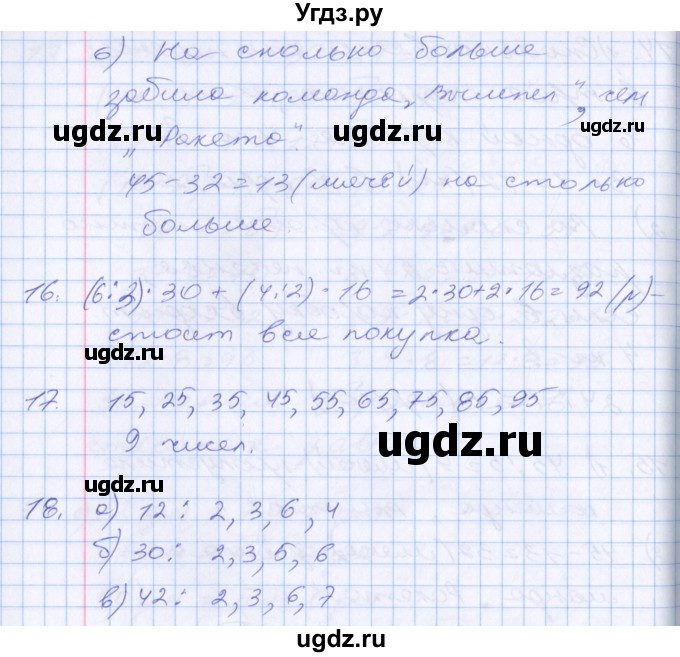 Угдз.ру
б) На сколько больше
забила команда „Вымпел", чем
„Ракета".
45-32=13 (мячей) на столько
больше.
16. (6:3)·30+(4:2)·16=2·30+2·16=92 (р)-
стоит вся покупка.
17. 15, 25, 35, 45, 55, 65, 75, 85, 95
9 чисел.
18. а) 12: 2, 3, 6, 4
б) 30: 2, 3, 5, 6
в) 42: 2, 3, 6, 7
ugdz.ru
ugdz.ru
ugdz.ru
ugdz.ru
ugdz.ru
ugdz.ru
ugdz.ru